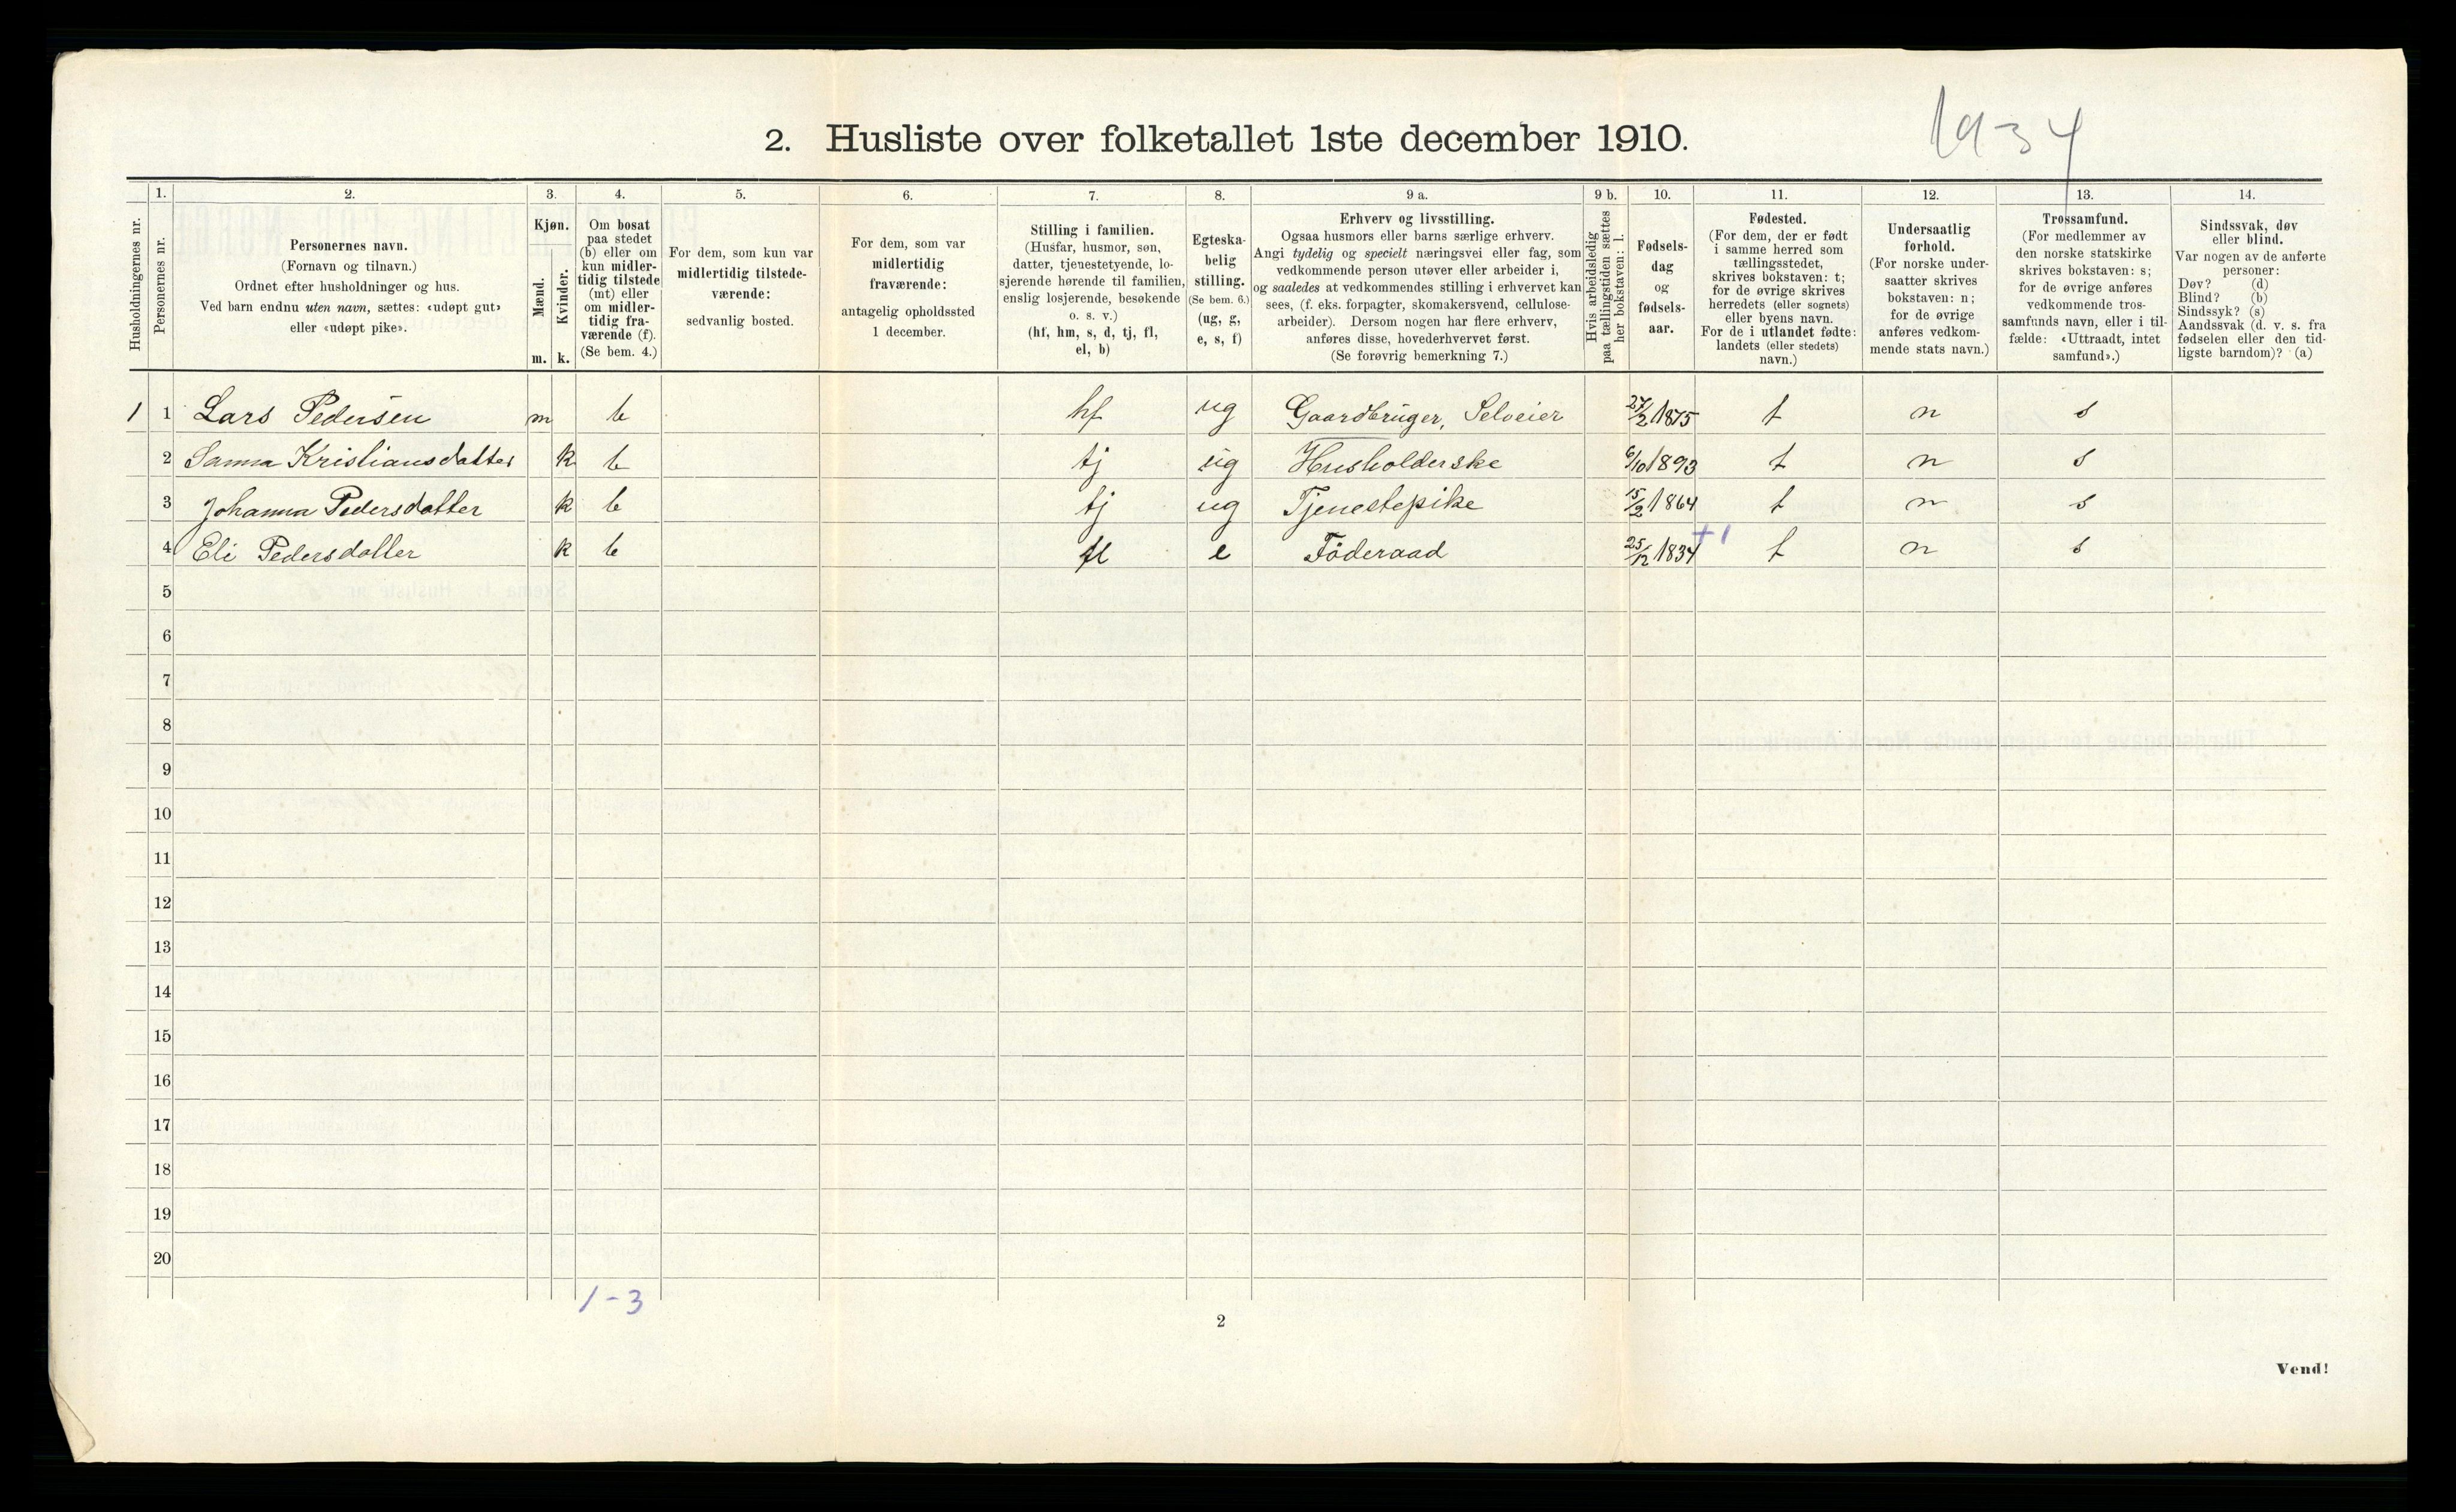 2. Husliste over folketallet 1ste december 1910.
1934
1. 2. 3. 4. 5. 6. 7. 8. 9 a. 9 b. 10. 11. 12. 13. 14.
Husholdningernes nr.
Personernes nr.
Personernes navn.
(Fornavn og tilnavn.)
Ordnet efter husholdninger og hus.
Ved barn endnu uten navn, sættes: «udøpt gut»
eller «udøpt pike».
Kjøn.
Mænd.
Kvinder.
m. k.
Om bosat
paa stedet
(b) eller om
kun midler-
tidig tilstede
(mt) eller
om midler-
tidig fra-
værende (f).
(Se bem. 4.)
For dem, som kun var
midlertidig tilstede-
værende:
sedvanlig bosted.
For dem, som var
midlertidig
fraværende:
antagelig opholdssted
1 december.
Stilling i familien.
(Husfar, husmor, søn,
datter, tjenestetyende, lo-
sjerende hørende til familien,
enslig losjerende, besøkende
o. s. v.)
(hf, hm, s, d, tj, fl,
el, b)
Egteska-
belig
stilling.
(Se bem. 6.)
(ug, g,
e, s, f)
Erhverv og livsstilling.
Ogsaa husmors eller barns særlige erhverv.
Angi tydelig og specielt næringsvei eller fag, som
vedkommende person utøver eller arbeider i,
og saaledes at vedkommendes stilling i erhvervet kan
sees, (f. eks. forpagter, skomakersvend, cellulose-
arbeider). Dersom nogen har flere erhverv,
anføres disse, hovederhvervet først.
(Se forøvrig bemerkning 7.)
Hvis arbeidsledig
paa tællingstiden sættes
her bokstaven: l.
Fødsels-
dag
og
fødsels-
aar.
Fødested.
(For dem, der er født
i samme herred som
tællingsstedet,
skrives bokstaven: t;
for de øvrige skrives
herredets (eller sognets)
eller byens navn.
For de i utlandet fødte:
landets (eller stedets)
navn.)
Undersaatlig
forhold.
(For norske under-
saatter skrives
bokstaven: n;
for de øvrige
anføres vedkom-
mende stats navn.)
Trossamfund.
(For medlemmer av
den norske statskirke
skrives bokstaven: s;
for de øvrige anføres
vedkommende tros-
samfunds navn, eller i til-
fælde: «Uttraadt, intet
samfund».)
Sindssvak, døv
eller blind.
Var nogen av de anførte
personer:
Døv? (d)
Blind? (b)
Sindssyk? (s)
Aandssvak (d. v. s. fra
fødselen eller den tid-
ligste barndom)? (a)
1 1 Lars Pedersen m b hf ug Gaardbruger, Selveier 27/2 1875 t n s
2 Sanna Kristiansdatter k b tj ug Husholderske 6/10 1893 t n s
3 Johanna Pedersdatter k b tj ug Tjenestepike 15/2 1864 t n s
4 Eli Pedersdatter k b fl e Föderaad 25/12 1834 +1 t n s
5
6
7
8
9
10
11
12
13
14
15
16
17
18
19
20
1-3
2
Vend!